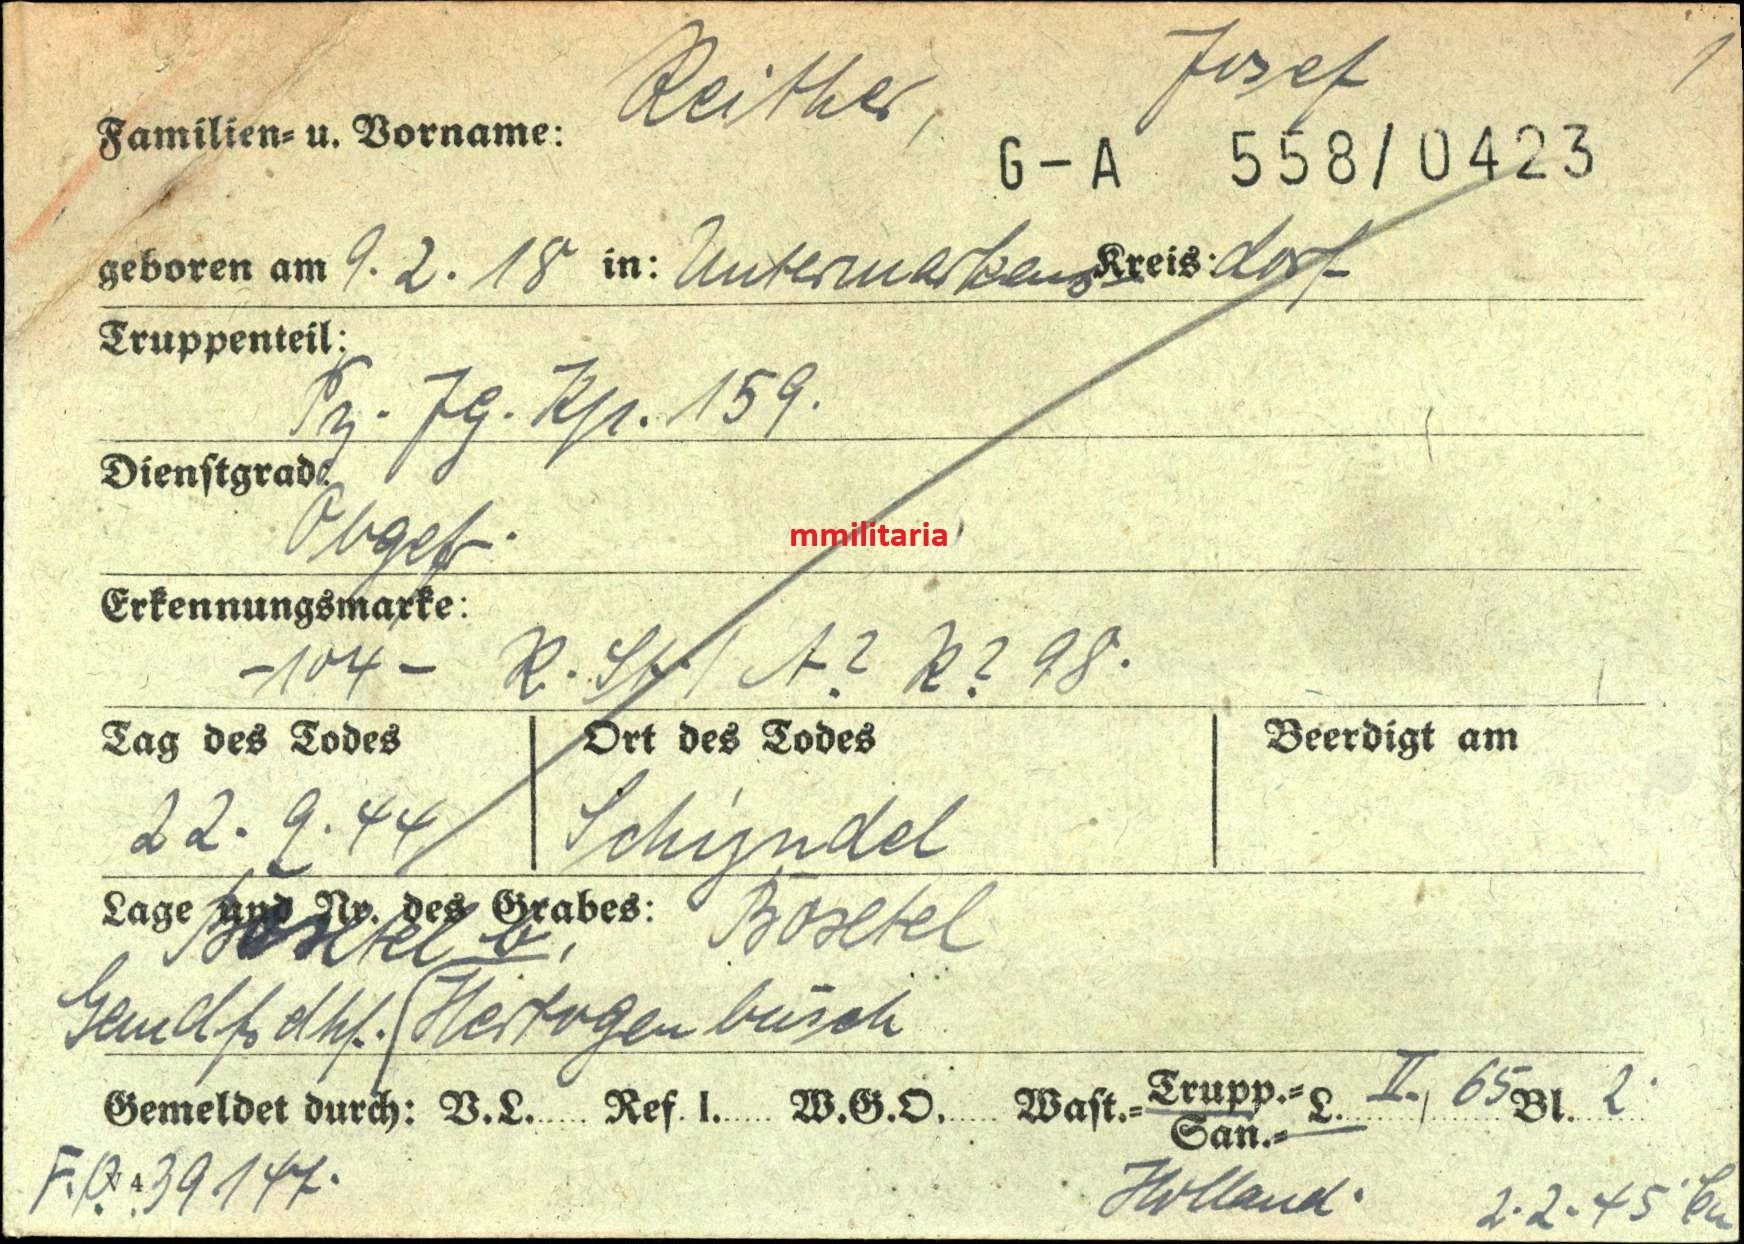 Reither, Josef 1
Familien- u. Vorname:
G-A 558/0423
geboren am 9. 2. 18 in: Untermarkens Kreis: dorf
Truppenteil:
Pz. Jg. Kp. 159.
Dienstgrad:
Obgefr.
Erkennungsmarke:
-104- K. St. / A? K? 98.
mmilitaria
Tag des Todes Ort des Todes Beerdigt am
22. 9. 44 Schijndel
Lage und Nr. des Grabes: Boxtel
Boxtel b.
Gemdfrdhf. Hertogenbusch
Gemeldet durch: V.L. Ref. I. W.G.O. Wast.= Trupp.= L. II., 65 Bl. 2.
San.=
F.P. N 4 39147. Holland. 2.2.45